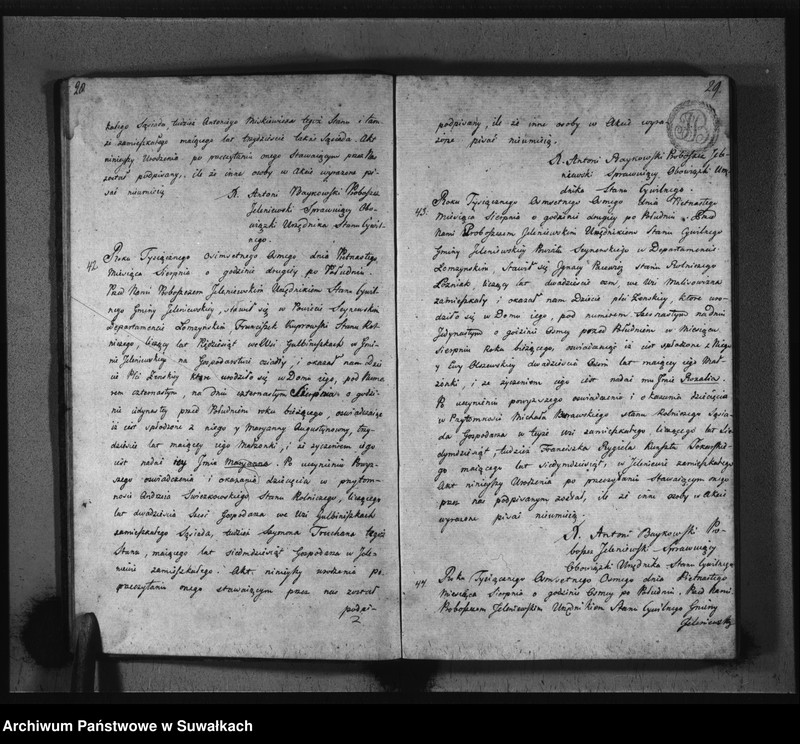 20
kałego Sąsiada, tudzież Antoniego Miskiewicza tegoż Stanu i tam
że zamieszkałego maiącego lat trzydzieście także Sąsiada. Akt
ninieyszy Urodzenia po przeczytaniu onego Stawaiącym przez Nas
został podpisany, ile że inne osoby w Akcie wyrażone pi-
sać nieumieią
X. Antoni Baykowski Proboszcz
Jeleniewski Sprawuiący Obo-
wiązki Urzędnika Stanu Cywil-
nego.
42. Roku Tysiącznego Osimsetnego Osmego dnia Pietnastego
Miesiąca Sierpnia o godzinie drugiéy po Południu.
Przed Nami Proboszczem Jeleniewskim Urzędnikiem Stanu Cywil-
nego Gminy Jeleniewskiey, stawił się w Powiecie Seynewskim
Departamencie Łomzynskim Franciszek Kuprowski Stanu Rol-
niczego, liczący lat Pięćdziesiąt we Wsi Gulbiniszkach w Gmi-
nie Jeleniewskiey na Gospodarstwie osiadły; i okazał nam dziec
ię Płci Zeńskiey które urodziło się w Domu iego, pod Nume-
rem czternastym, na dniu czternastym Sierpnia o godzi-
nie iedynastey przed Południem roku bieżącego, oświadczaiąc
iż iest spłodzone z niego y Maryanny Augustynowny, trzy-
dzieście lat maiącey iego Małżonki, i iż życzeniem iego
iest nadać iey Imie Maryanna. Po uczynieniu Powyż-
szego oświadczenia i okazania dziecięcia w przytom-
ności Andrzeia Swierzkowskiego Stanu Rolniczego, liczącego
lat dwadzieścia Sześć Gospodarza we Wsi Gulbiniszkach
zamieszkałego Sąsiada, tudzież Szymona Truchana tegoż
Stanu, maiącego lat siedmdziesiąt Gospodarza w Jelen-
iewie zamieszkałego. Akt ninieyszy urodzenia po
przeczytaniu onego stawaiącym przez nas został
podpi-
2
29.
podpisany, ile że inne osoby w Akcie wyra-
żone pisać nieumieią.
X. Antoni Baykowski Proboszcz Jele-
niewski Sprawuiący Obowiązki Urzę-
dnika Stanu Cywilnego.
43. Roku Tysiącznego Osmsetnego Osmego dnia Pietnastego
Miesiąca Sierpnia o godzinie drugiey po Południu. Przed
Nami Proboszczem Jeleniewskim Urzędnikiem Stanu Cywilnego
Gminy Jeleniewskiey Powiatu Seynenskiego w Departamencie
Łomzynskim, stawił się Ignacy stanu Rolniczego
liczący lat dwadzieścia osm, we Wsi
zamieszkały i okazał nam Dziecie płci Zenskiey, które uro-
dziło się w Domu iego, pod numerem na dniu
Jedynastym o godzinie Osmey przed Południem w Miesiącu
Sierpniu Roku bieżącego, oświadczaiąc iż iest spłodzone z Niego
y Ewy Olszewskiey dwadzieścia Osm lat maiącey iego Mał-
żonki, i że życzeniem iego iest nadać mu Imie Rozalia.
Po uczynieniu powyższego oświadczenia i okazania dziecięcia
w Przytomności Michała stanu Rolniczego Sąsia-
da Gospodarza w teyże wsi zamieszkałego liczącego lat Sie-
dymdziesiąt, tudzież Franciszka Rygiela
go maiącego lat Siedymdziesiąt, w Jeleniewie zamieszkałego.
Akt ninieyszy Urodzenia po przeczytaniu stawaiącym onego
przez nas podpisanym został, ile że inni osoby w Akcie
wyrażone pisać nieumieią.
X. Antoni Baykowski Pro-
boszcz Jeleniewski Sprawuiący
Obowiązki Urzędnika Stanu Cywilnego
44. Roku Tysiącznego Osmsetnego Osmego dnia Pietnastego
Miesiąca Sierpnia o godzinie Osmey po Południu. Przed Nami
Proboszczem Jeleniewskim Urzędnikiem Stanu Cywilnego Gminy
Jeleniewskiey
Archiwum Państwowe w Suwałkach